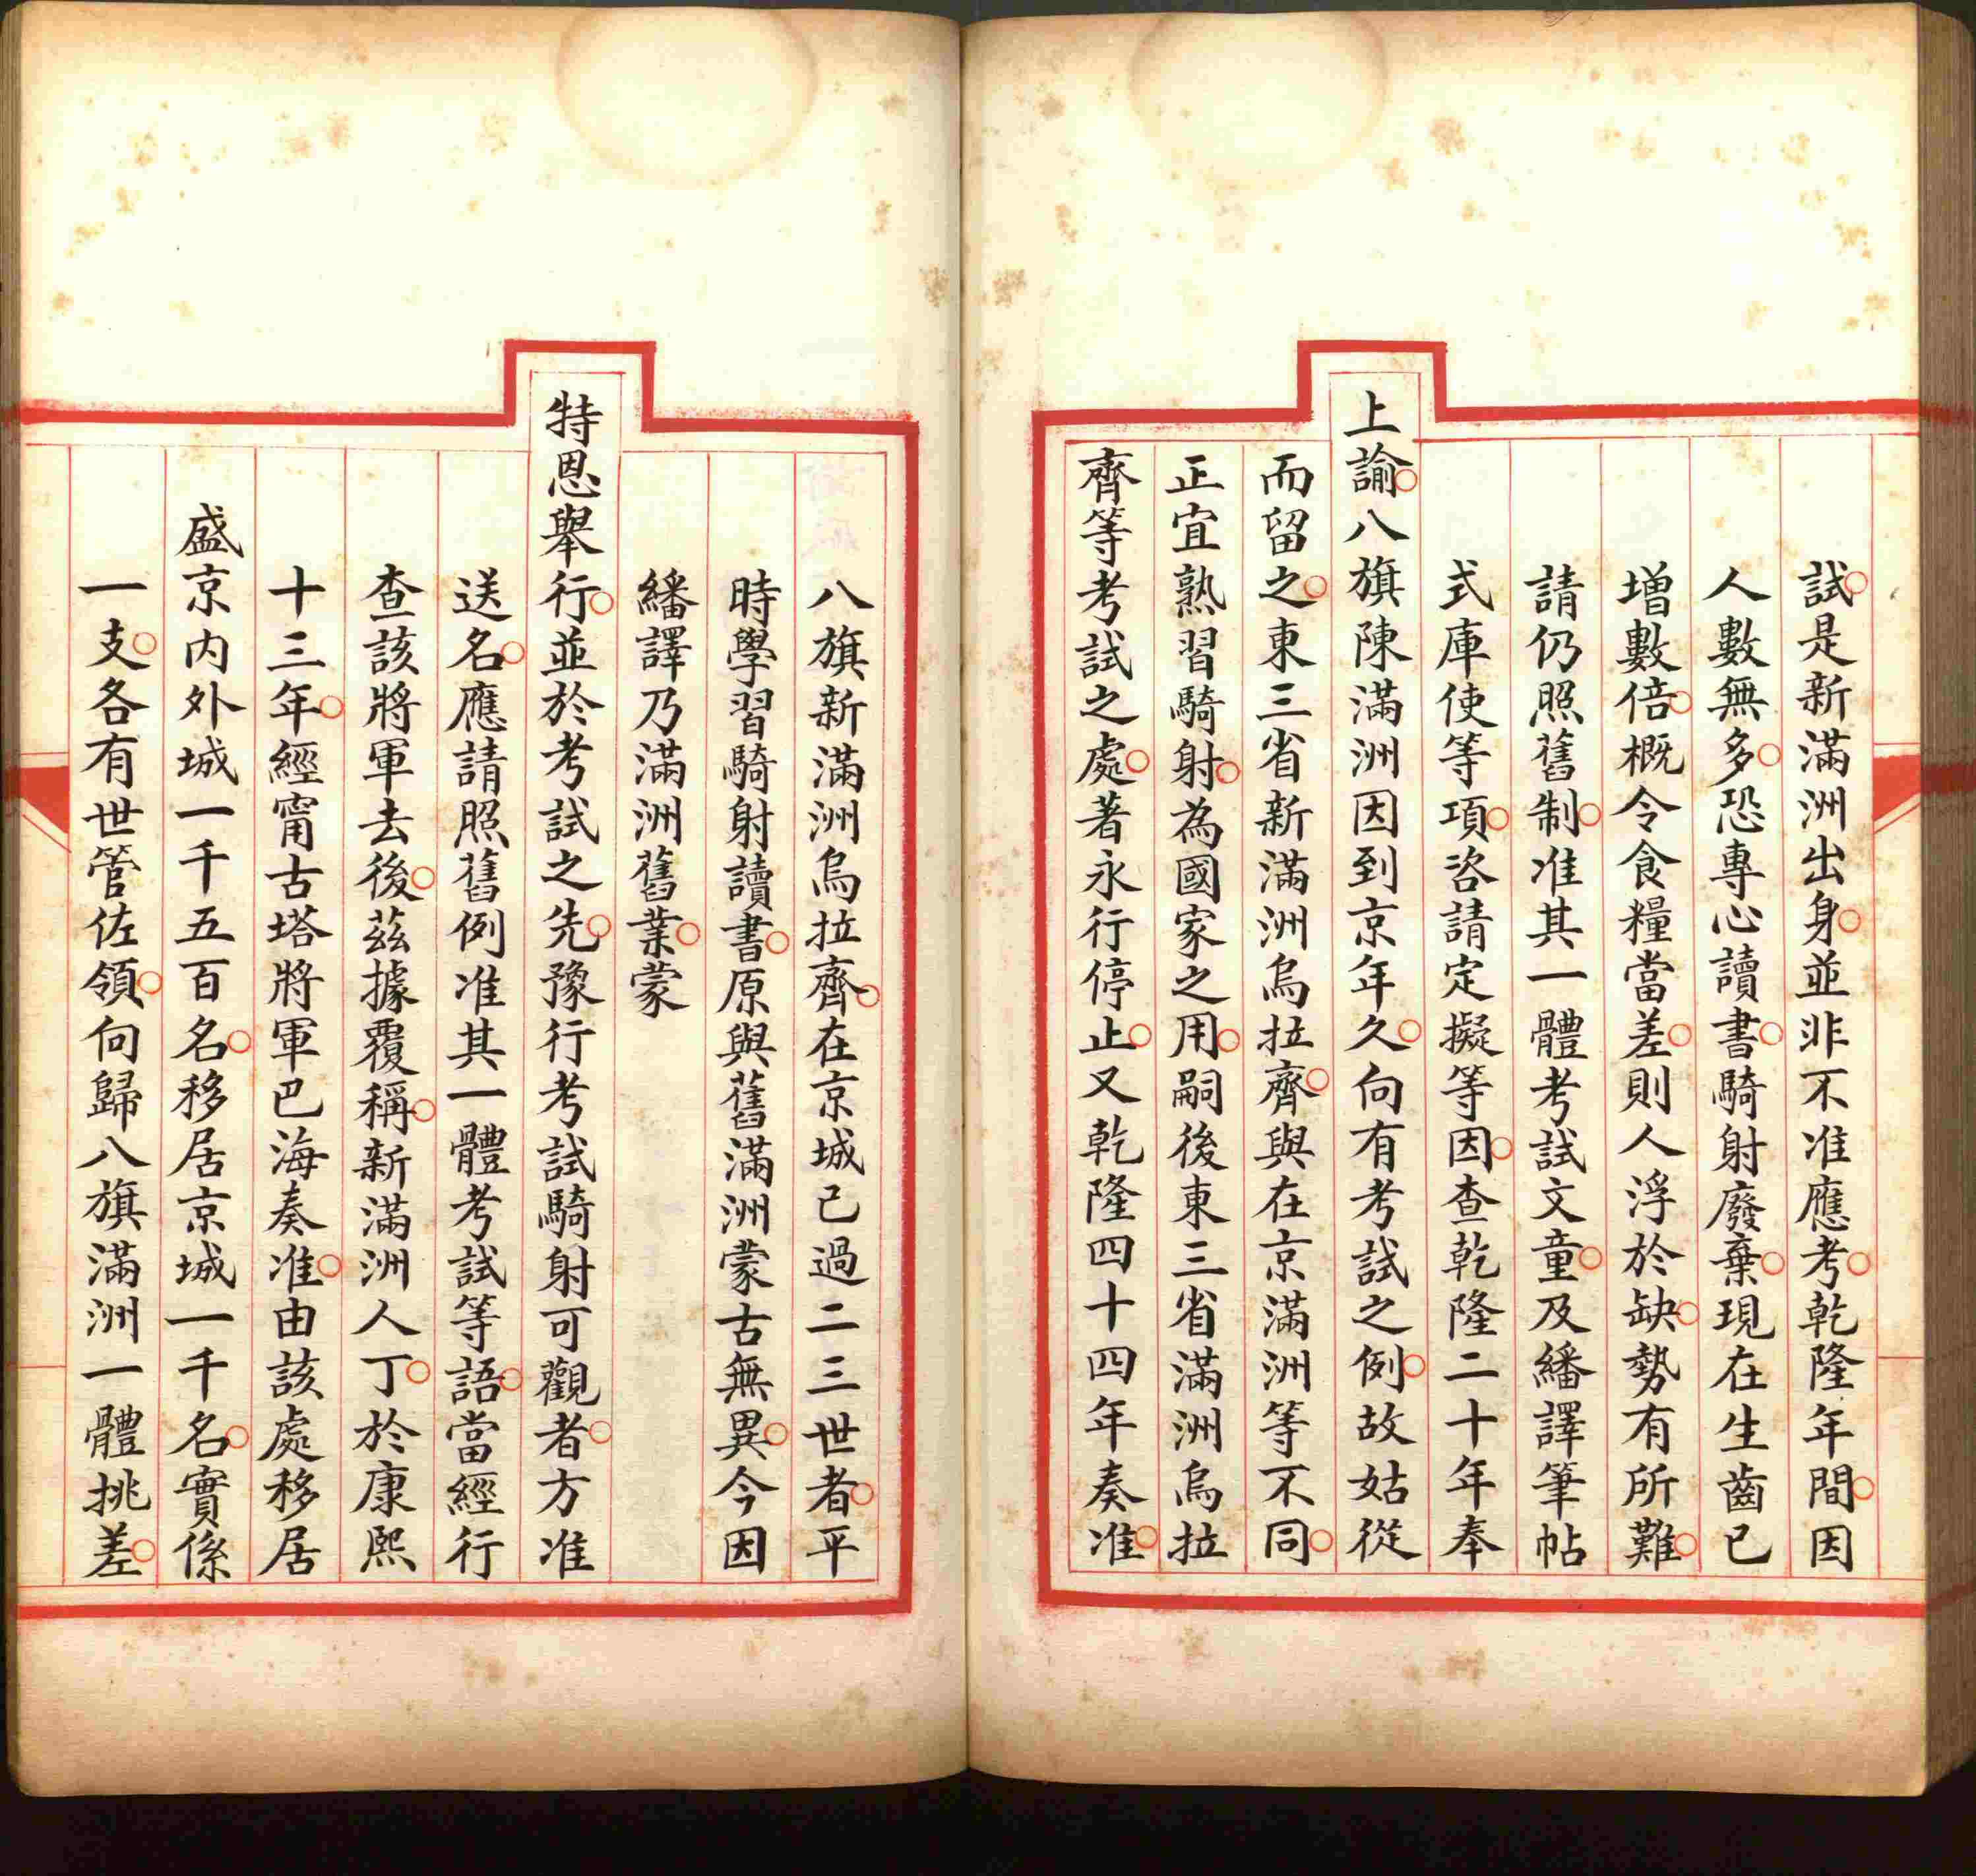 試是新滿洲出身並非不准應考乾隆年間因
人數無多恐專心讀書騎射廢棄現在生齒已
增數倍概令食糧當差則人浮於缺勢有所難
請仍照舊制准其一體考試文童及繙譯筆帖
式庫使等項咨請定擬等因查乾隆二十年奉
上諭八旗陳滿洲因到京年久向有考試之例故姑從
而留之東三省新滿洲烏拉齊與在京滿洲等不同
正宜熟習騎射為國家之用嗣後東三省滿洲烏拉
齊等考試之處著永行停止又乾隆四十四年奏准
八旗新滿洲烏拉齊在京城已過二三世者平
時學習騎射讀書原與舊滿洲蒙古無異今因
繙譯乃滿洲舊業蒙
特恩舉行並於考試之先豫行考試騎射可觀者方准
送名應請照舊例准其一體考試等語當經行
查該將軍去後茲據覆稱新滿洲人丁於康熙
十三年經甯古塔將軍巴海奏准由該處移居
盛京內外城一千五百名移居京城一千名實係
一支各有世管佐領向歸八旗滿洲一體挑差